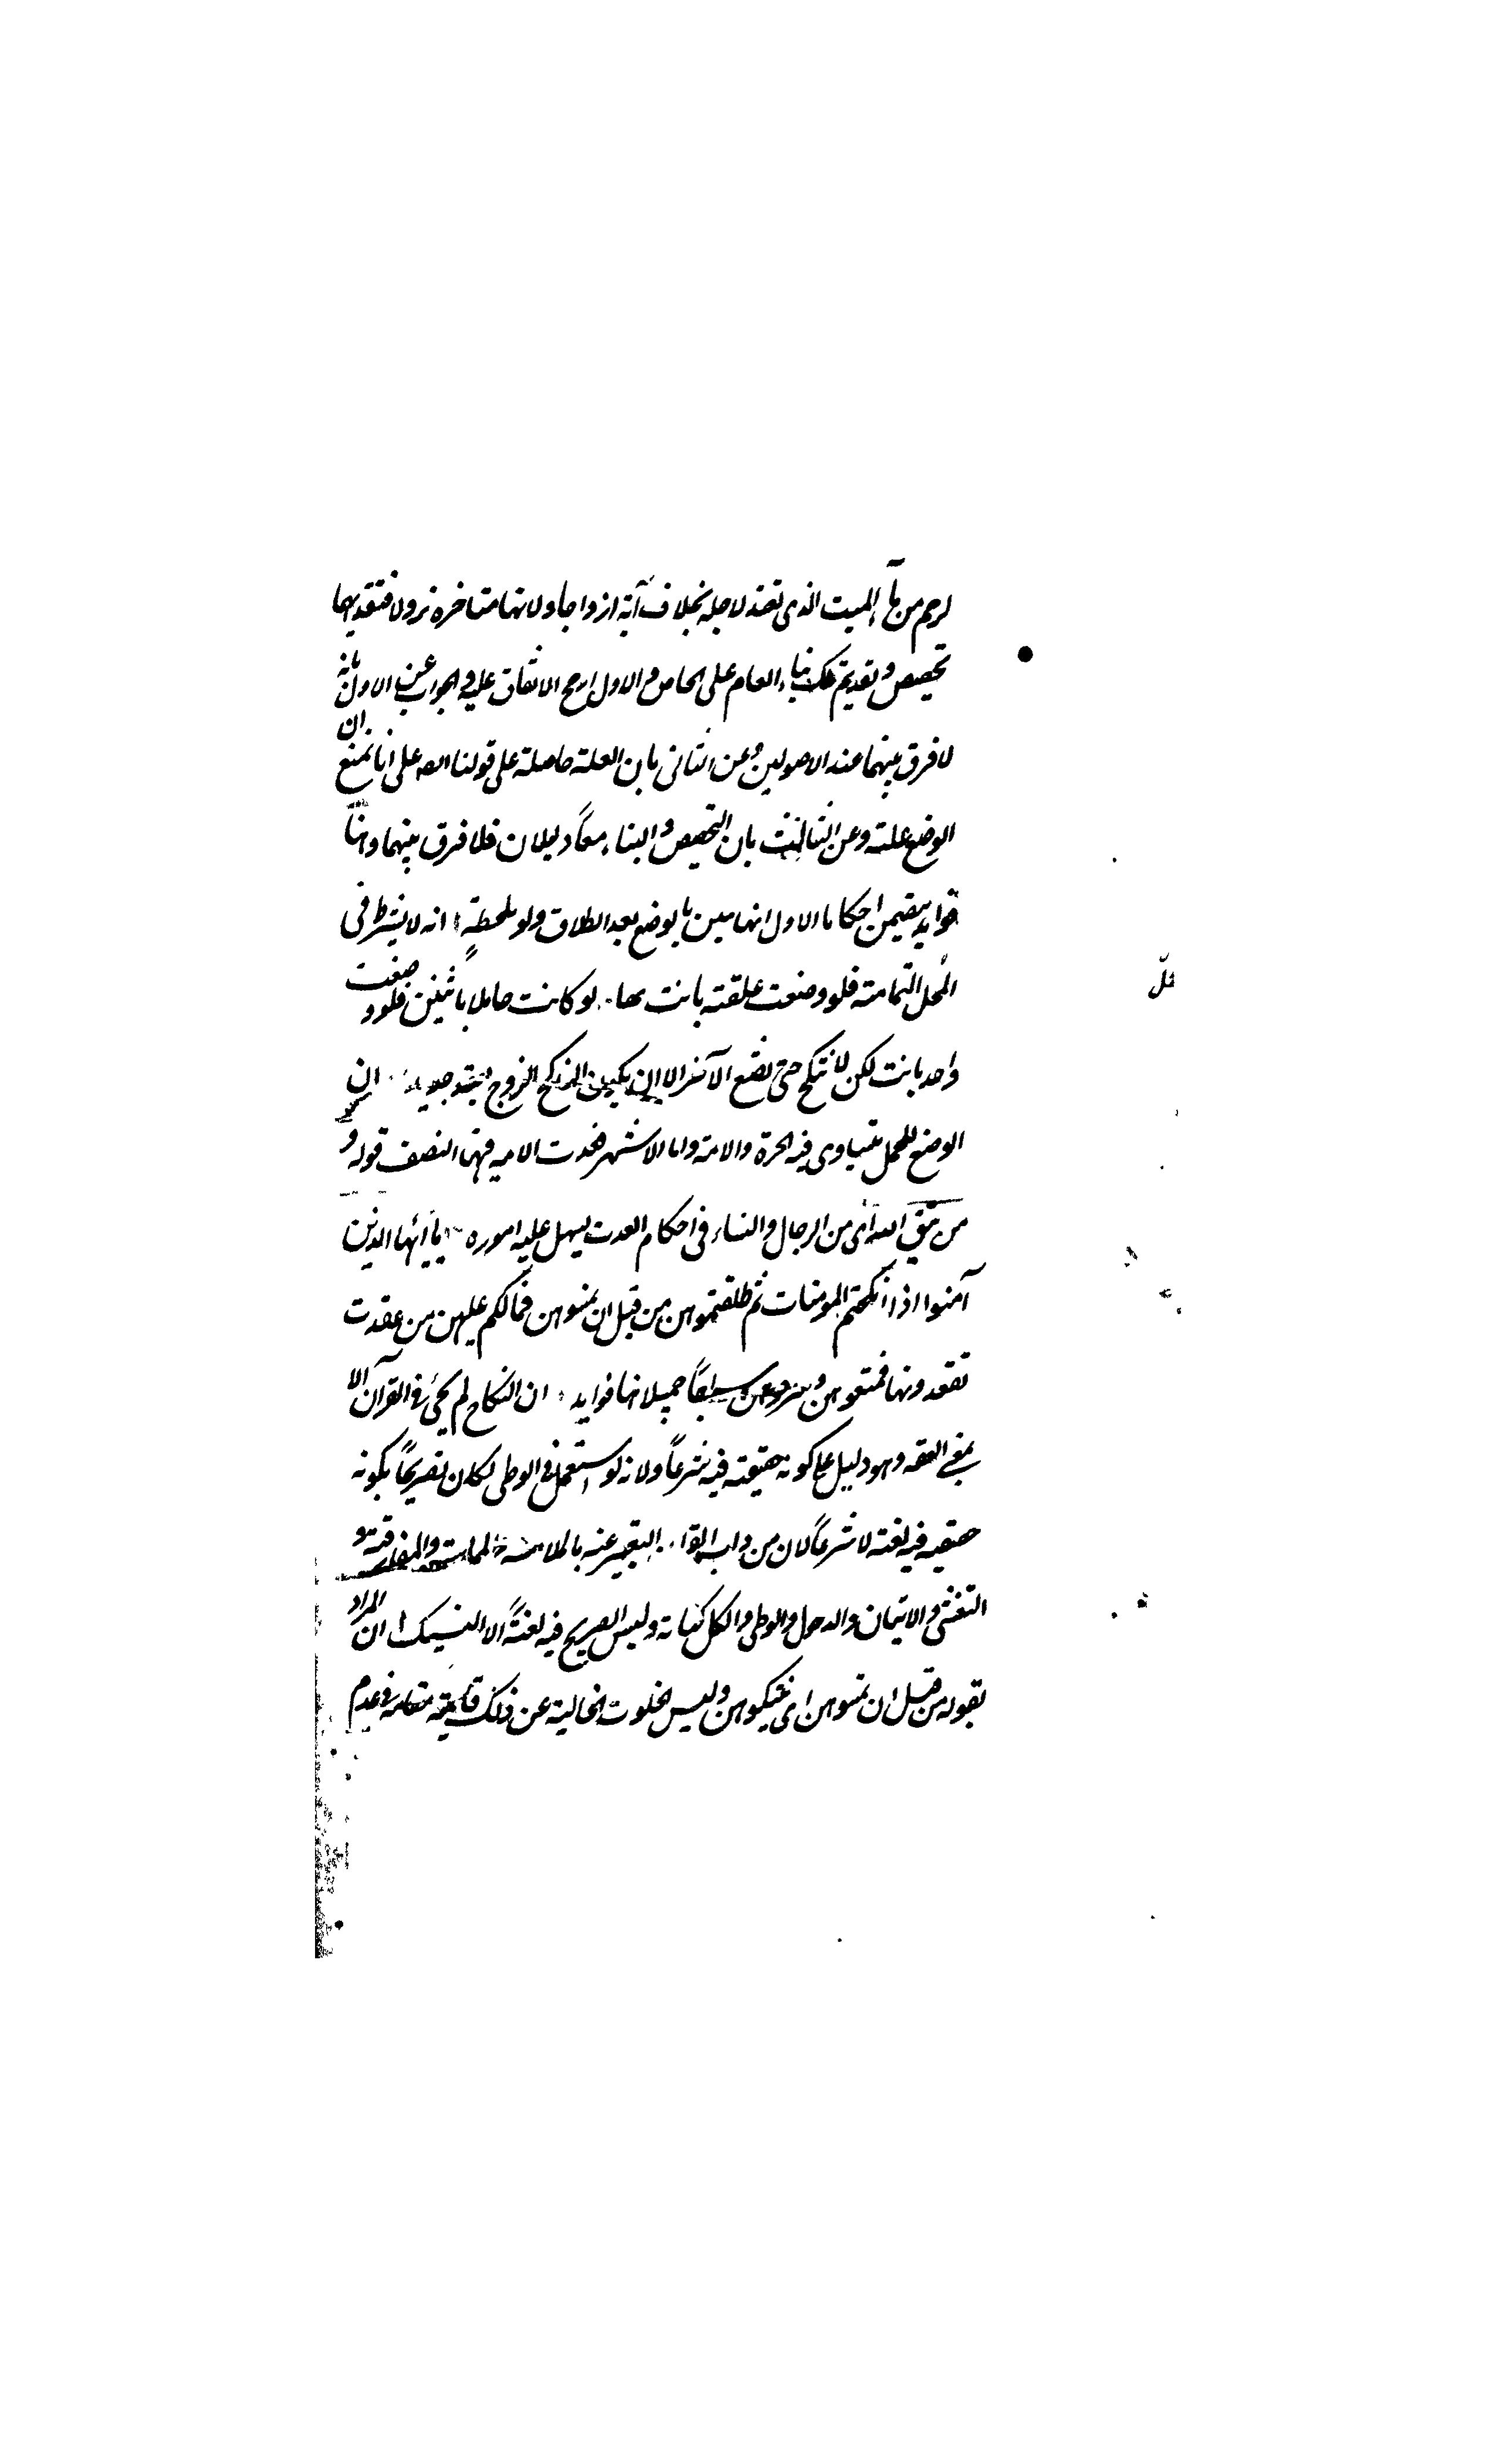 لرحم من ماء الميت الذى تعتد لاجله بخلاف آية ازواجا ولانها متاخرة نزولا فتقديمها
تخصيص وتقديم تلك بناء العام على الخاص والاول ارجح للاتفاق عليه والجواب عن الاول بانه
لا فرق بينهما عند الاصولين وعن الثانى بان العلة حاصلة على قولنا ايضا على انا نمنع ان
الوضع علته وعن الثالث بان التخصيص والبناء معاً دليلان فلا فرق بينهما وهنا
فوايد يتضمن احكاما الاول انها تبين بالوضع بعد الطلاق ولو بلحظة انه لا يشترط فى
الحمل التمامية فلو وضعت علقته بانت بها لو كانت حاملا باثنين فلو وضعت
واحد بانت لكن لا تنكح حتى تضع الآخر الا ان يكون الناكح الزوج ان
الوضع للحمل يتساوى فيه الحرة والامة واما الاشهر فعدت الامة فيها النصف قوله و
من يتق الله اى من الرجال والنساء فى احكام العدت يسهل عليه اموره يا ايها الذين
آمنوا اذا انكحتم المومنات ثم طلقتموهن من قبل ان تمسوهن فمالكم عليهن من عقدت
تعتدونها فمتعوهن وسرحوهن سراحاً جميلا هنا فوايد ان النكاح لم يجئ فى القرآن الا
بمعنى العقد وهو دليل على كونه حقيقته فيه شرعاً ولانه لو استعمل فى الوطى لكان تصريحاً بكونه
حقيقه فيه لغة لا شرعاً لان من داب القران التعبير عنه بالملامسة والمماسة والمقاربة و
التغشى والاتيان والدخول والوطى والكل كناية وليس الصريح فيه لغةً الا النيك ان المراد
بقوله من قبل ان تمسوهن اى تنيكوهن وليس الخلوت الخالية عن ذلك قايمة مقامه فى عدم